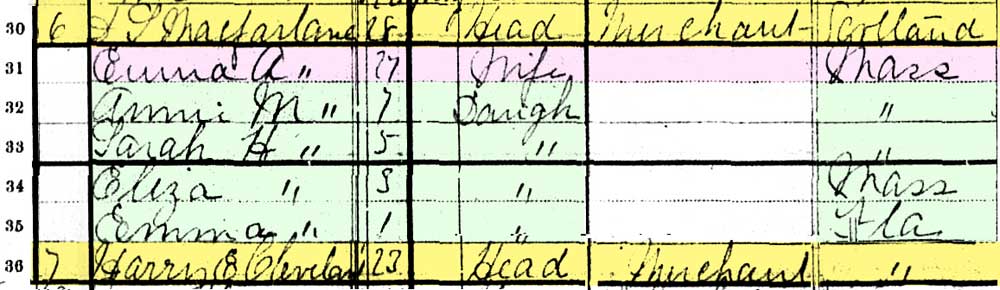 30 6 Macfarlane 28 Head Merchant Scotland
31 Emma A " 27 Wife Mass
32 Annie M " 7 Daugh "
33 Sarah H " 5 " "
34 Eliza " 3 " Mass
35 Emma " 1 " Fla
36 7 Harry E Cleveland 23 Head Merchant "